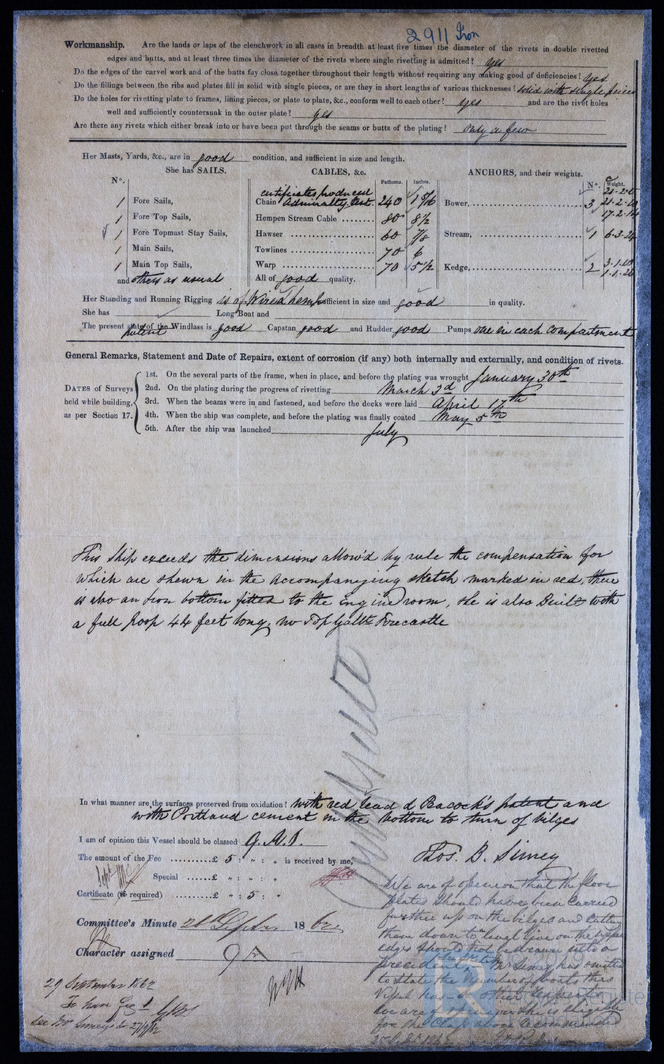 2911 Iron
Workmanship. Are the lands or laps of the clenchwork in all cases in breadth at least five times the diameter of the rivets in double rivetted
edges and butts, and at least three times the diameter of the rivets where single rivetting is admitted? yes
Do the edges of the carvel work and of the butts fay close together throughout their length without requiring any making good of deficiencies? yes
Do the fillings between the ribs and plates fill in solid with single pieces, or are they in short lengths of various thicknesses? solid with single pieces
Do the holes for rivetting plate to frames, lining pieces, or plate to plate, &c., conform well to each other? yes and are the rivet holes
well and sufficiently countersunk in the outer plate? yes
Are there any rivets which either break into or have been put through the seams or butts of the plating? only a few
Her Masts, Yards, &c., are in good condition, and sufficient in size and length.
She has SAILS. CABLES, &c. ANCHORS, and their weights.
N°. Fathoms. Inches. N°. Weight.
certificates produced
1 Fore Sails, Chain Admiralty test 240 1 9/16 Bower 3
1 Fore Top Sails, Hempen Stream Cable 80 8 1/2
1 Fore Topmast Stay Sails, Hawser 60 7/8 Stream 1
1 Main Sails, Towlines 70 6
1 Main Top Sails, Warp 70 5 1/2 Kedge 2
and others as usual All of good quality.
Her Standing and Running Rigging is of Wire & hemp sufficient in size and good in quality.
She has Long Boat and
The present state of the Windlass is patent good Capstan good and Rudder good Pumps one in each compartment
General Remarks, Statement and Date of Repairs, extent of corrosion (if any) both internally and externally, and condition of rivets.
DATES of Surveys held while building, as per Section 17.
1st. On the several parts of the frame, when in place, and before the plating was wrought January 30th
2nd. On the plating during the progress of rivetting March 3d
3rd. When the beams were in and fastened, and before the decks were laid April 17th
4th. When the ship was complete, and before the plating was finally coated May 5th
5th. After the ship was launched July
This ship exceeds the dimensions allow'd by rule the compensation for
which are shown in the accompanying sketch marked in red, there
is also an Iron bottom fitted to the engine room, she is also Built with
a full poop 44 feet long, no Top Gallt Forecastle
In what manner are the surfaces preserved from oxidation? with red lead & Peacock's patent and
with Portland cement in the bottom to turn of bilges
I am of opinion this Vessel should be classed 9.A.1.
The amount of the Fee £ 5 " : " : is received by me,
Special £ " : " :
Certificate (if required) £ " : 5 :
Thos. B. Simey
Committee's Minute 18 62
Character assigned 9 A
We are of opinion that the floor
plates should have been carried
further up on the bilges and cutting
them down to level line on the upper
edge should not be drawn into a
precedent. Mr Simey has omitted
to state the number of boats this
29 September 1862